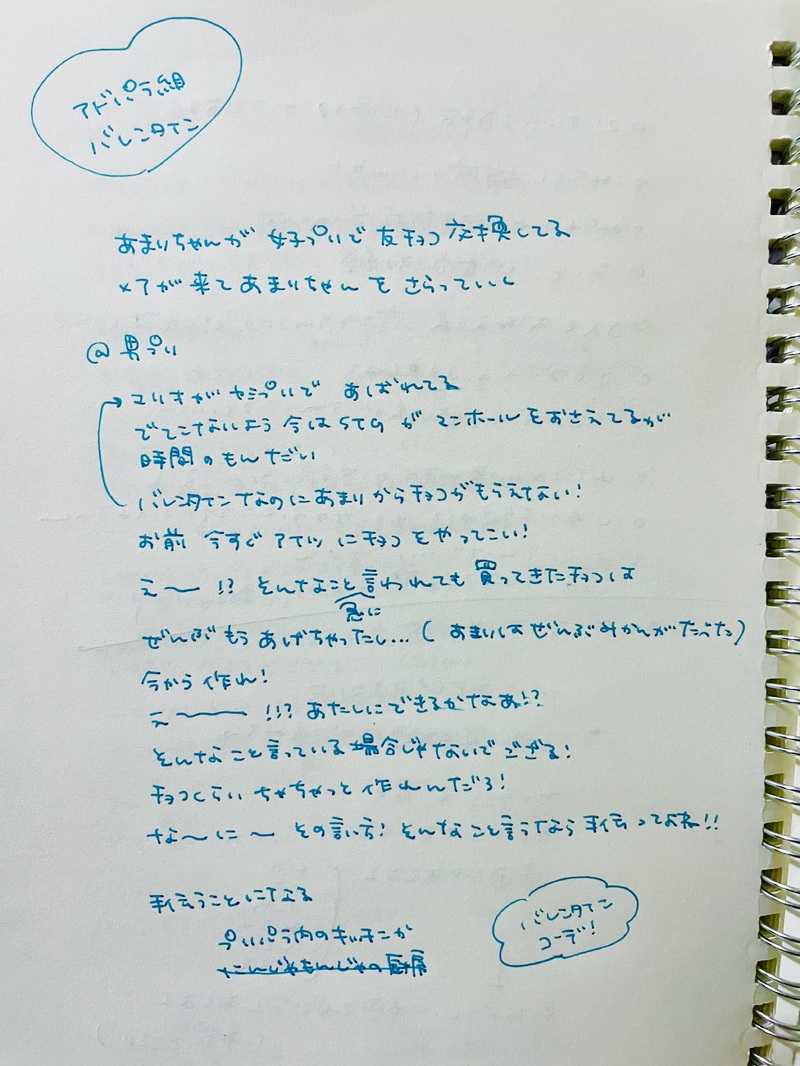 アドパラ組
バレンタイン
あまりちゃんが 女子ぷりで 友チョコ交換してる
メアが来てあまりちゃんを さらっていく
@男ぷり
マリオがヤミぷりで あばれてる
でてこないよう 今はSTQ が マンホールをおさえてるが
時間のもんだい
バレンタインなのにあまりからチョコがもらえてない!
お前 今すぐ アイツ にチョコをやってこい!
え〜 !? そんなこと言われても 買ってきたチョコは
急に
ぜんぶもう あげちゃったし…( あまりはぜんぶみかんがたべた)
今から作れ!
え〜〜 !!? あたしにできるかなあ!?
そんなこと言っている場合じゃないでござる!
チョコくらい ちゃちゃっと 作れんだろ!
な〜に〜 その言い方! そんなこと言うなら 手伝ってよね!!
手伝うことになる
プリパラ内のキッチンか
にんじゃもんじゃの厨房
バレンタイン
コーデ!